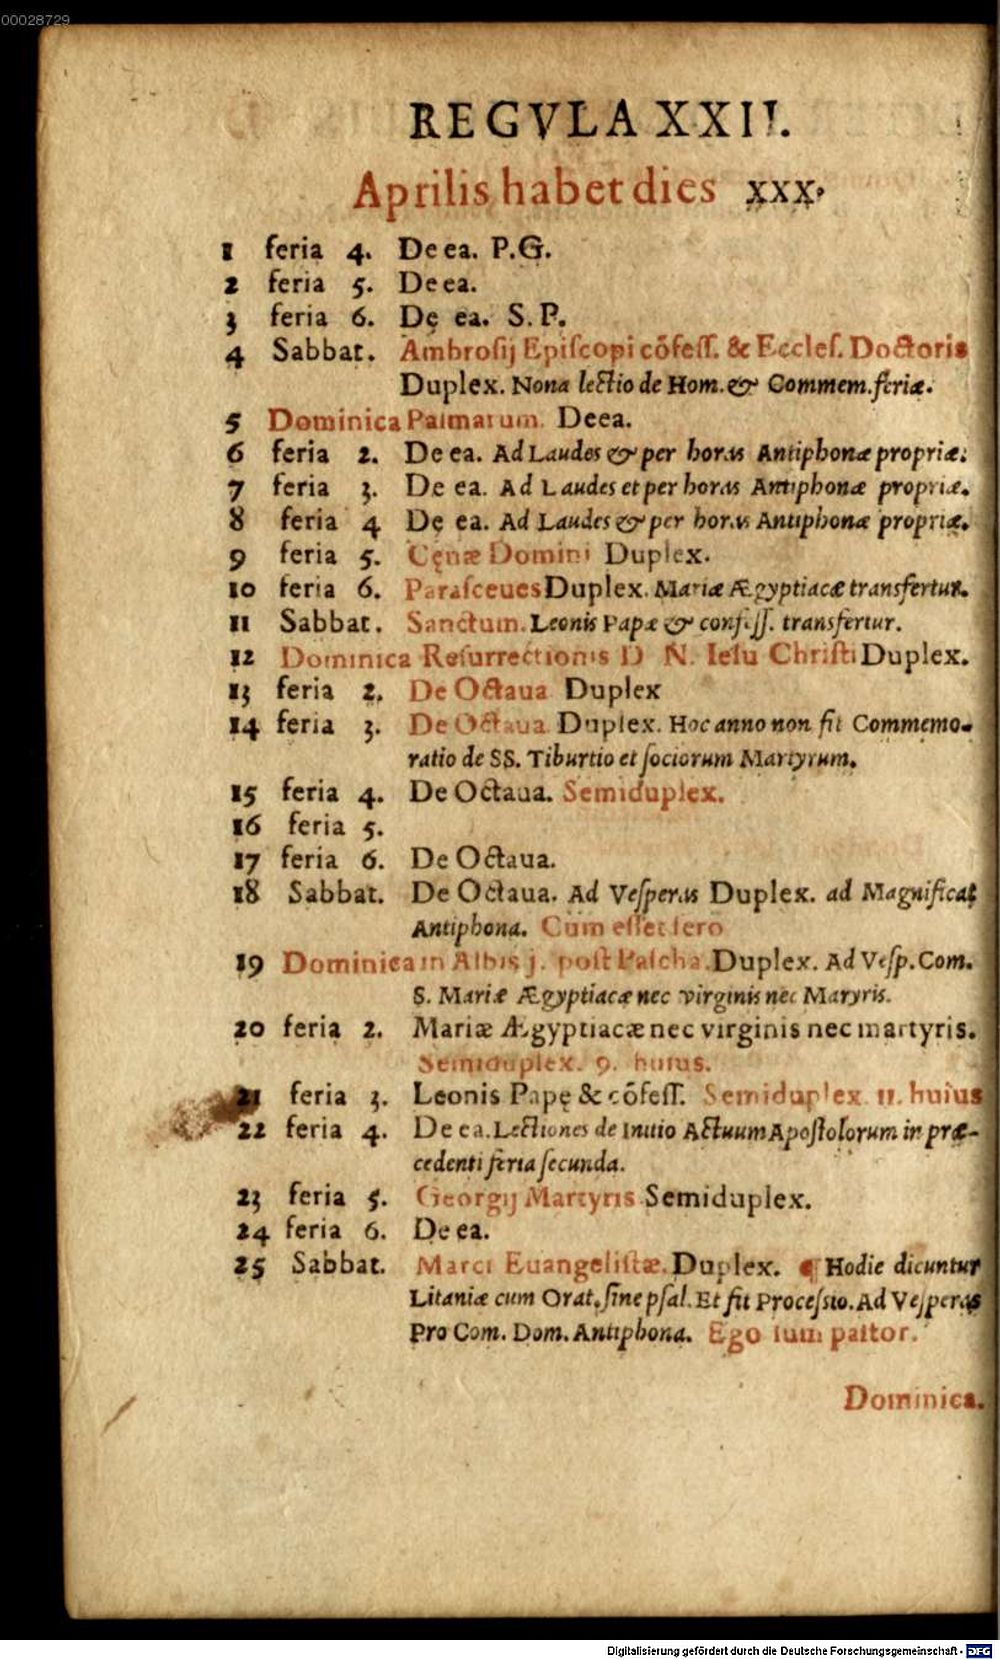 00028729
REGVLA XXII.
Aprilis habet dies xxx.
1 feria 4. De ea. P.G.
2 feria 5. De ea.
3 feria 6. Dę ea. S.P.
4 Sabbat. Ambrosij Episcopi cõfess. & Eccles. Doctoris
Duplex. Nona lectio de Hom. & Commem. feriæ.
5 Dominica Palmarum. De ea.
6 feria 2. De ea. Ad Laudes & per horas Antiphonæ propriæ.
7 feria 3. De ea. Ad Laudes et per horas Antiphonæ propriæ.
8 feria 4 Dę ea. Ad Laudes & per horas Antiphonæ propriæ.
9 feria 5. Cęnæ Domini Duplex.
10 feria 6. Parasceues Duplex. Mariæ Ægyptiacæ transfertur.
11 Sabbat. Sanctum. Leonis Papæ & confess. transfertur.
12 Dominica Resurrectionis D N. Iesu Christi Duplex.
13 feria 2. De Octaua Duplex
14 feria 3. De Octaua Duplex. Hoc anno non fit Commemo-
ratio de SS. Tiburtio et sociorum Martyrum.
15 feria 4. De Octaua. Semiduplex.
16 feria 5.
17 feria 6. De Octaua.
18 Sabbat. De Octaua. Ad Vesperas Duplex. ad Magnificat
Antiphona. Cum esset sero
19 Dominica in Albis j. post Pascha. Duplex. Ad Vesp. Com.
S. Mariæ Ægyptiacæ nec virginis nec Maryris.
20 feria 2. Mariæ Ægyptiacæ nec virginis nec martyris.
Semiduplex. 9. huius.
21 feria 3. Leonis Papę & cõfess. Semiduplex. 11. huius
22 feria 4. De ea. Lectiones de Initio Actuum Apostolorum in præ-
cedenti feria secunda.
23 feria 5. Georgij Martyris Semiduplex.
24 feria 6. De ea.
25 Sabbat. Marci Euangelistæ. Duplex. ¶ Hodie dicuntur
Litaniæ cum Orat. sine psal. Et fit Processio. Ad Vesperas
Pro Com. Dom. Antiphona. Ego sum pastor.
Dominica.
Digitalisierung gefördert durch die Deutsche Forschungsgemeinschaft - DFG